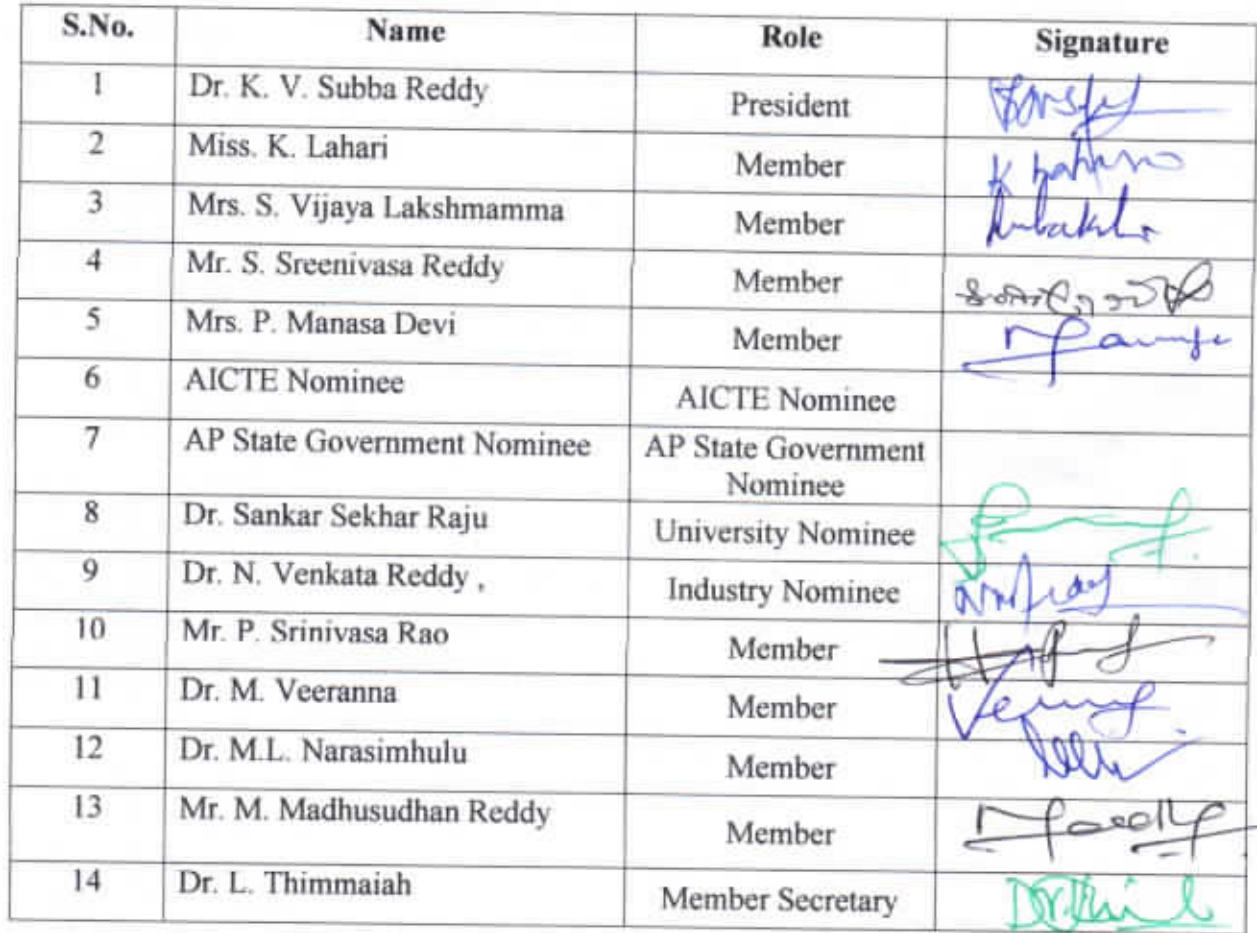 S.No. Name Role Signature
1 Dr. K. V. Subba Reddy President
2 Miss. K. Lahari Member
3 Mrs. S. Vijaya Lakshmamma Member
4 Mr. S. Sreenivasa Reddy Member
5 Mrs. P. Manasa Devi Member
6 AICTE Nominee AICTE Nominee
7 AP State Government Nominee AP State Government
Nominee
8 Dr. Sankar Sekhar Raju University Nominee
9 Dr. N. Venkata Reddy , Industry Nominee
10 Mr. P. Srinivasa Rao Member
11 Dr. M. Veeranna Member
12 Dr. M.L. Narasimhulu Member
13 Mr. M. Madhusudhan Reddy Member
14 Dr. L. Thimmaiah Member Secretary